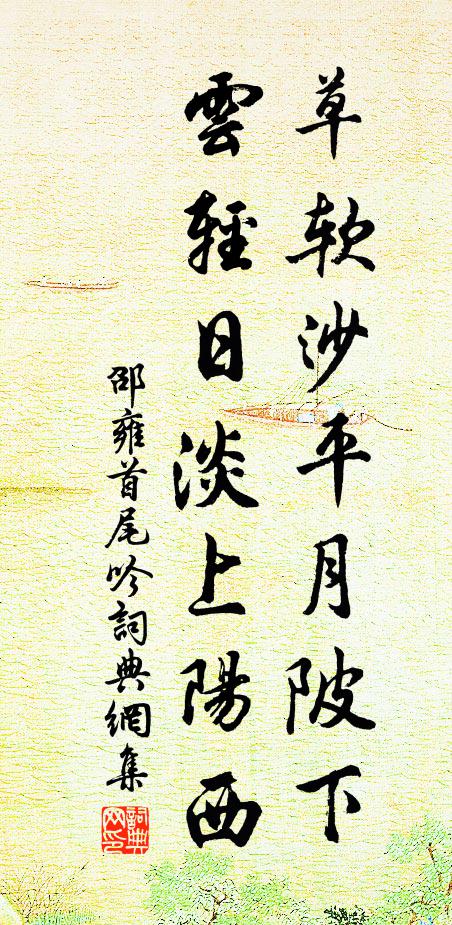 草軟沙平月陂下
雲輕日淡上陽西
邵雍首尾吟詞典網集
詞典网印